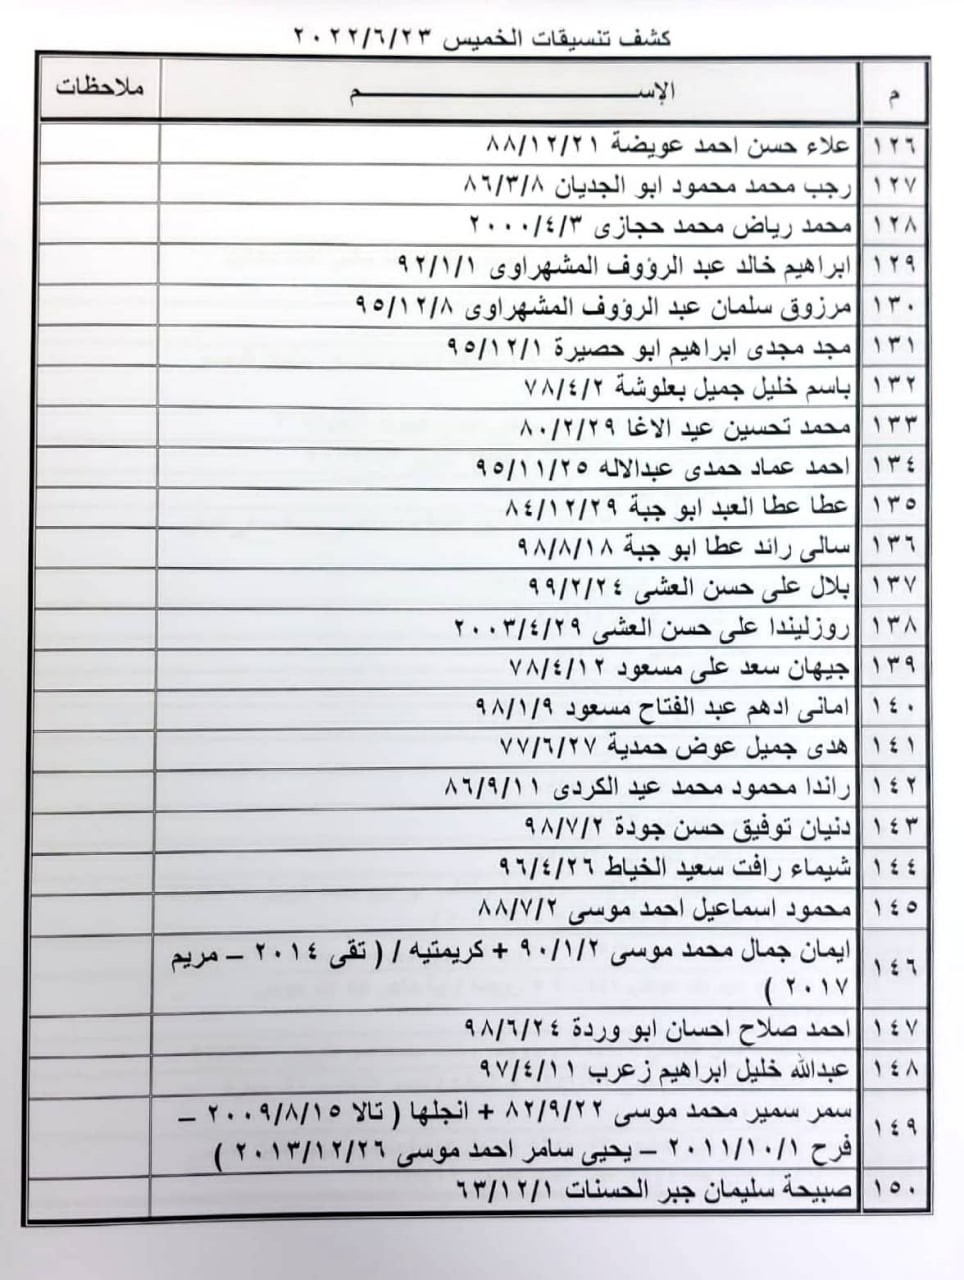 كشف تنسيقات الخميس ٢٠٢٢/٦/٢٣
م الإســـــــــــم ملاحظات
١٢٦ علاء حسن احمد عويضة ٨٨/١٢/٢١
١٢٧ رجب محمد محمود ابو الجديان ٨٦/٣/٨
١٢٨ محمد رياض محمد حجازى ٢٠٠٠/٤/٣
١٢٩ ابراهيم خالد عبد الرؤوف المشهراوى ٩٢/١/١
١٣٠ مرزوق سلمان عبد الرؤوف المشهراوى ٩٥/١٢/٨
١٣١ مجد مجدى ابراهيم ابو حصيرة ٩٥/١٢/١
١٣٢ باسم خليل جميل بعلوشة ٧٨/٤/٢
١٣٣ محمد تحسين عيد الاغا ٨٠/٢/٢٩
١٣٤ احمد عماد حمدى عبدالاله ٩٥/١١/٢٥
١٣٥ عطا عطا العبد ابو جبة ٨٤/١٢/٢٩
١٣٦ سالى رائد عطا ابو جبة ٩٨/٨/١٨
١٣٧ بلال على حسن العشى ٩٩/٢/٢٤
١٣٨ روزليندا على حسن العشى ٢٠٠٣/٤/٢٩
١٣٩ جيهان سعد على مسعود ٧٨/٤/١٢
١٤٠ امانى ادهم عبد الفتاح مسعود ٩٨/١/٩
١٤١ هدى جميل عوض حمدية ٧٧/٦/٢٧
١٤٢ راندا محمود محمد عيد الكردى ٨٦/٩/١١
١٤٣ دنيان توفيق حسن جودة ٩٨/٧/٢
١٤٤ شيماء رافت سعيد الخياط ٩٦/٤/٢٦
١٤٥ محمود اسماعيل احمد موسى ٨٨/٧/٢
١٤٦ ايمان جمال محمد موسى ٩٠/١/٢ + كريمتيه / ( تقى ٢٠١٤ – مريم
٢٠١٧ )
١٤٧ احمد صلاح احسان ابو وردة ٩٨/٦/٢٤
١٤٨ عبدالله خليل ابراهيم زعرب ٩٧/٤/١١
١٤٩ سمر سمير محمد موسى ٨٢/٩/٢٢ + انجلها ( تالا ٢٠٠٩/٨/١٥ –
فرح ٢٠١١/١٠/١ – يحيى سامر احمد موسى ٢٠١٣/١٢/٢٦ )
١٥٠ صبيحة سليمان جبر الحسنات ٦٣/١٢/١